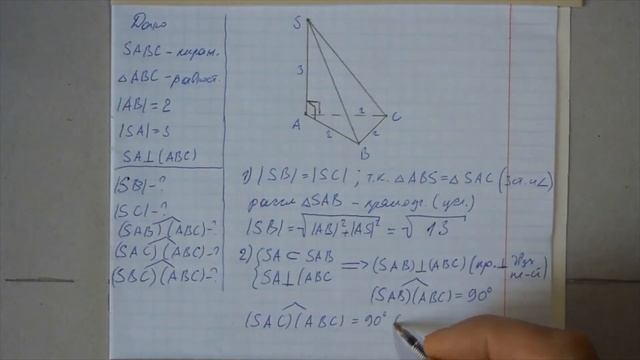 Дано
SABC – пирам.
△ABC – равност.
|AB| = 2
|SA| = 3
SA⊥(ABC)
|SB| – ?
|SC| – ?
(SAB)^(ABC) – ?
(SAC)^(ABC) – ?
(SBC)^(ABC) – ?
S
3
A
2
2
2
C
B
1) |SB| = |SC| ; т.к. △ABS = △SAC (
рассм △SAB – прямоуг. (усл.)
|SB| = √|AB|²+|AS|² = √13
2) { SA ⊂ SAB
{ SA⊥(ABC
⟹ (SAB)⊥(ABC) (пр. ⊥ двух пл-й)
(SAB)^(ABC) = 90°
(SAC)^(ABC) = 90° (